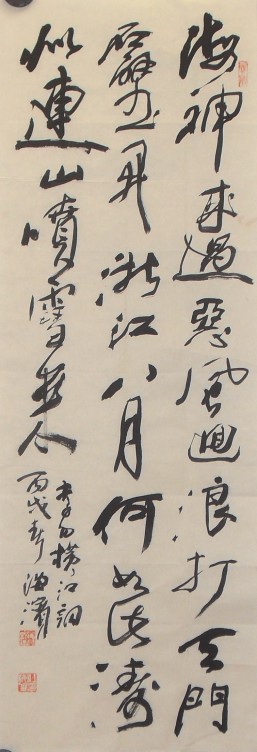 海神来過惡風迴浪打天門
石壁開浙江八月何如此濤
似連山噴雪来
李白橫江詞
丙戌春海濱